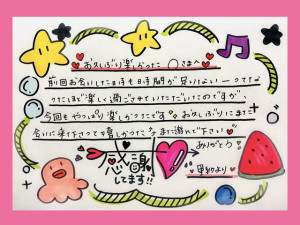 お久しぶり楽しかった♡〇さまへ♡
前回お会いした日時も時間が足りないーってくらい
ったほど楽しく過ごさせていただいたのですが、
今回もやっぱり楽しかったです♡お久しぶりにまた
会いに来て下さって嬉しかったです また遊んで下さい♡
感謝
してます!!
ありがとう
より